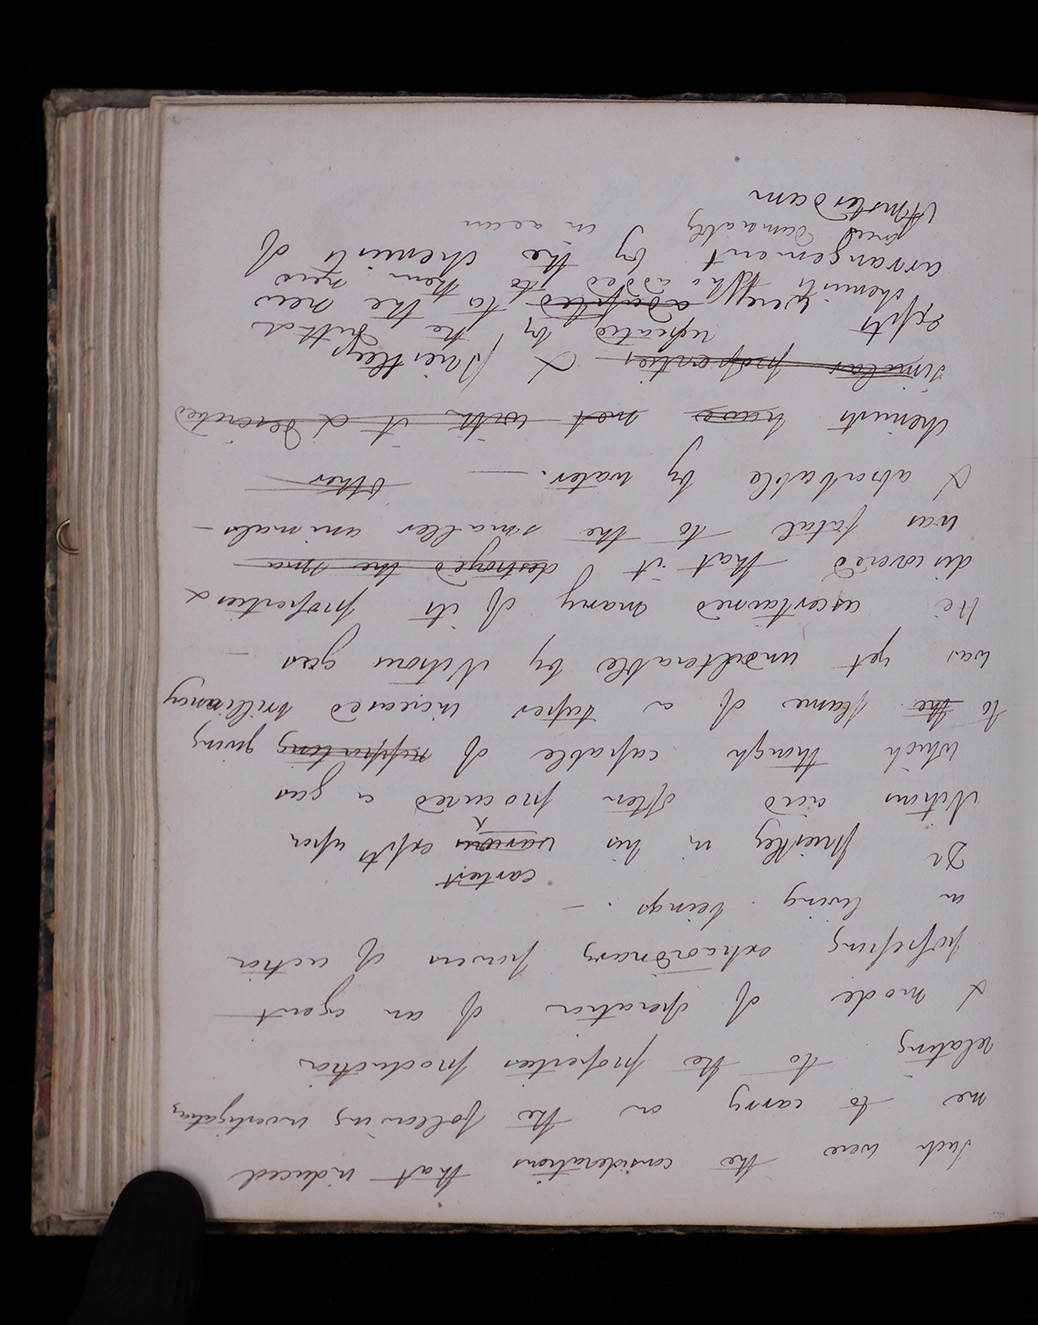 Such were the considerations that induced
me to carry on the following investigations
relating to the properties production
& mode of operation of an agent
possessing extraordinary powers of action
on living beings. —
earliest
Dr Priestley in his various expts upon
Nitrous acid often procured a gas
which though capable of supporting giving
to the flame of a taper increased brilliancy
was yet unalterable by Nitrous gas —
He ascertained many of its properties &
discovered that it destroyed the sma
was fatal to the smaller animals —
& absorbable by water. — Other
chemists have not with it & described
similar properties & Priestleys
expts repeated by the
were adapted to the new
chemists who added to them
arrangement by the chemists of
Amsterdam